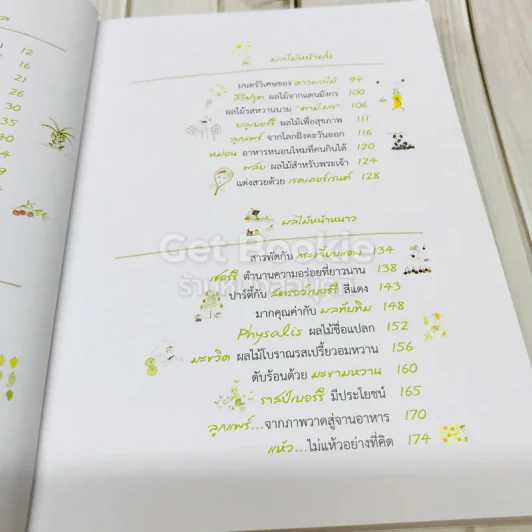 12
16
21
26
30
35
ผลไม้หน้าฝน
มนตร์วิเศษของ ดาวผลไม้ 94
ลิ้นจี่ ผลไม้จากแดนมังกร 100
ผลไม้รสหวานนาม "ตามังกร" 106
บลูเบอร์รี ผลไม้เพื่อสุขภาพ 111
ลูกแพร์ จากโลกฝั่งตะวันออก 116
หม่อน อาหารหนอนไหมที่คนกินได้ 120
พลับ ผลไม้สำหรับพระเจ้า 124
แต่งสวยด้วย เรดเคอร์เรนต์ 128
ผลไม้หน้าหนาว
สารพัดกับ กระเจี๊ยบแดง 134
เชอร์รี ตำนานความอร่อยที่ยาวนาน 138
ปาร์ตี้กับ สตรอว์เบอร์รี สีแดง 143
มากคุณค่ากับ ผลทับทิม 148
Physalis ผลไม้ชื่อแปลก 152
มะขวิด ผลไม้โบราณรสเปรี้ยวอมหวาน 156
ดับร้อนด้วย มะขามหวาน 160
ราสป์เบอร์รี มีประโยชน์ 165
ลูกแพร์...จากภาพวาดสู่จานอาหาร 170
แห้ว...ไม่แห้วอย่างที่คิด 174
Get Bookie